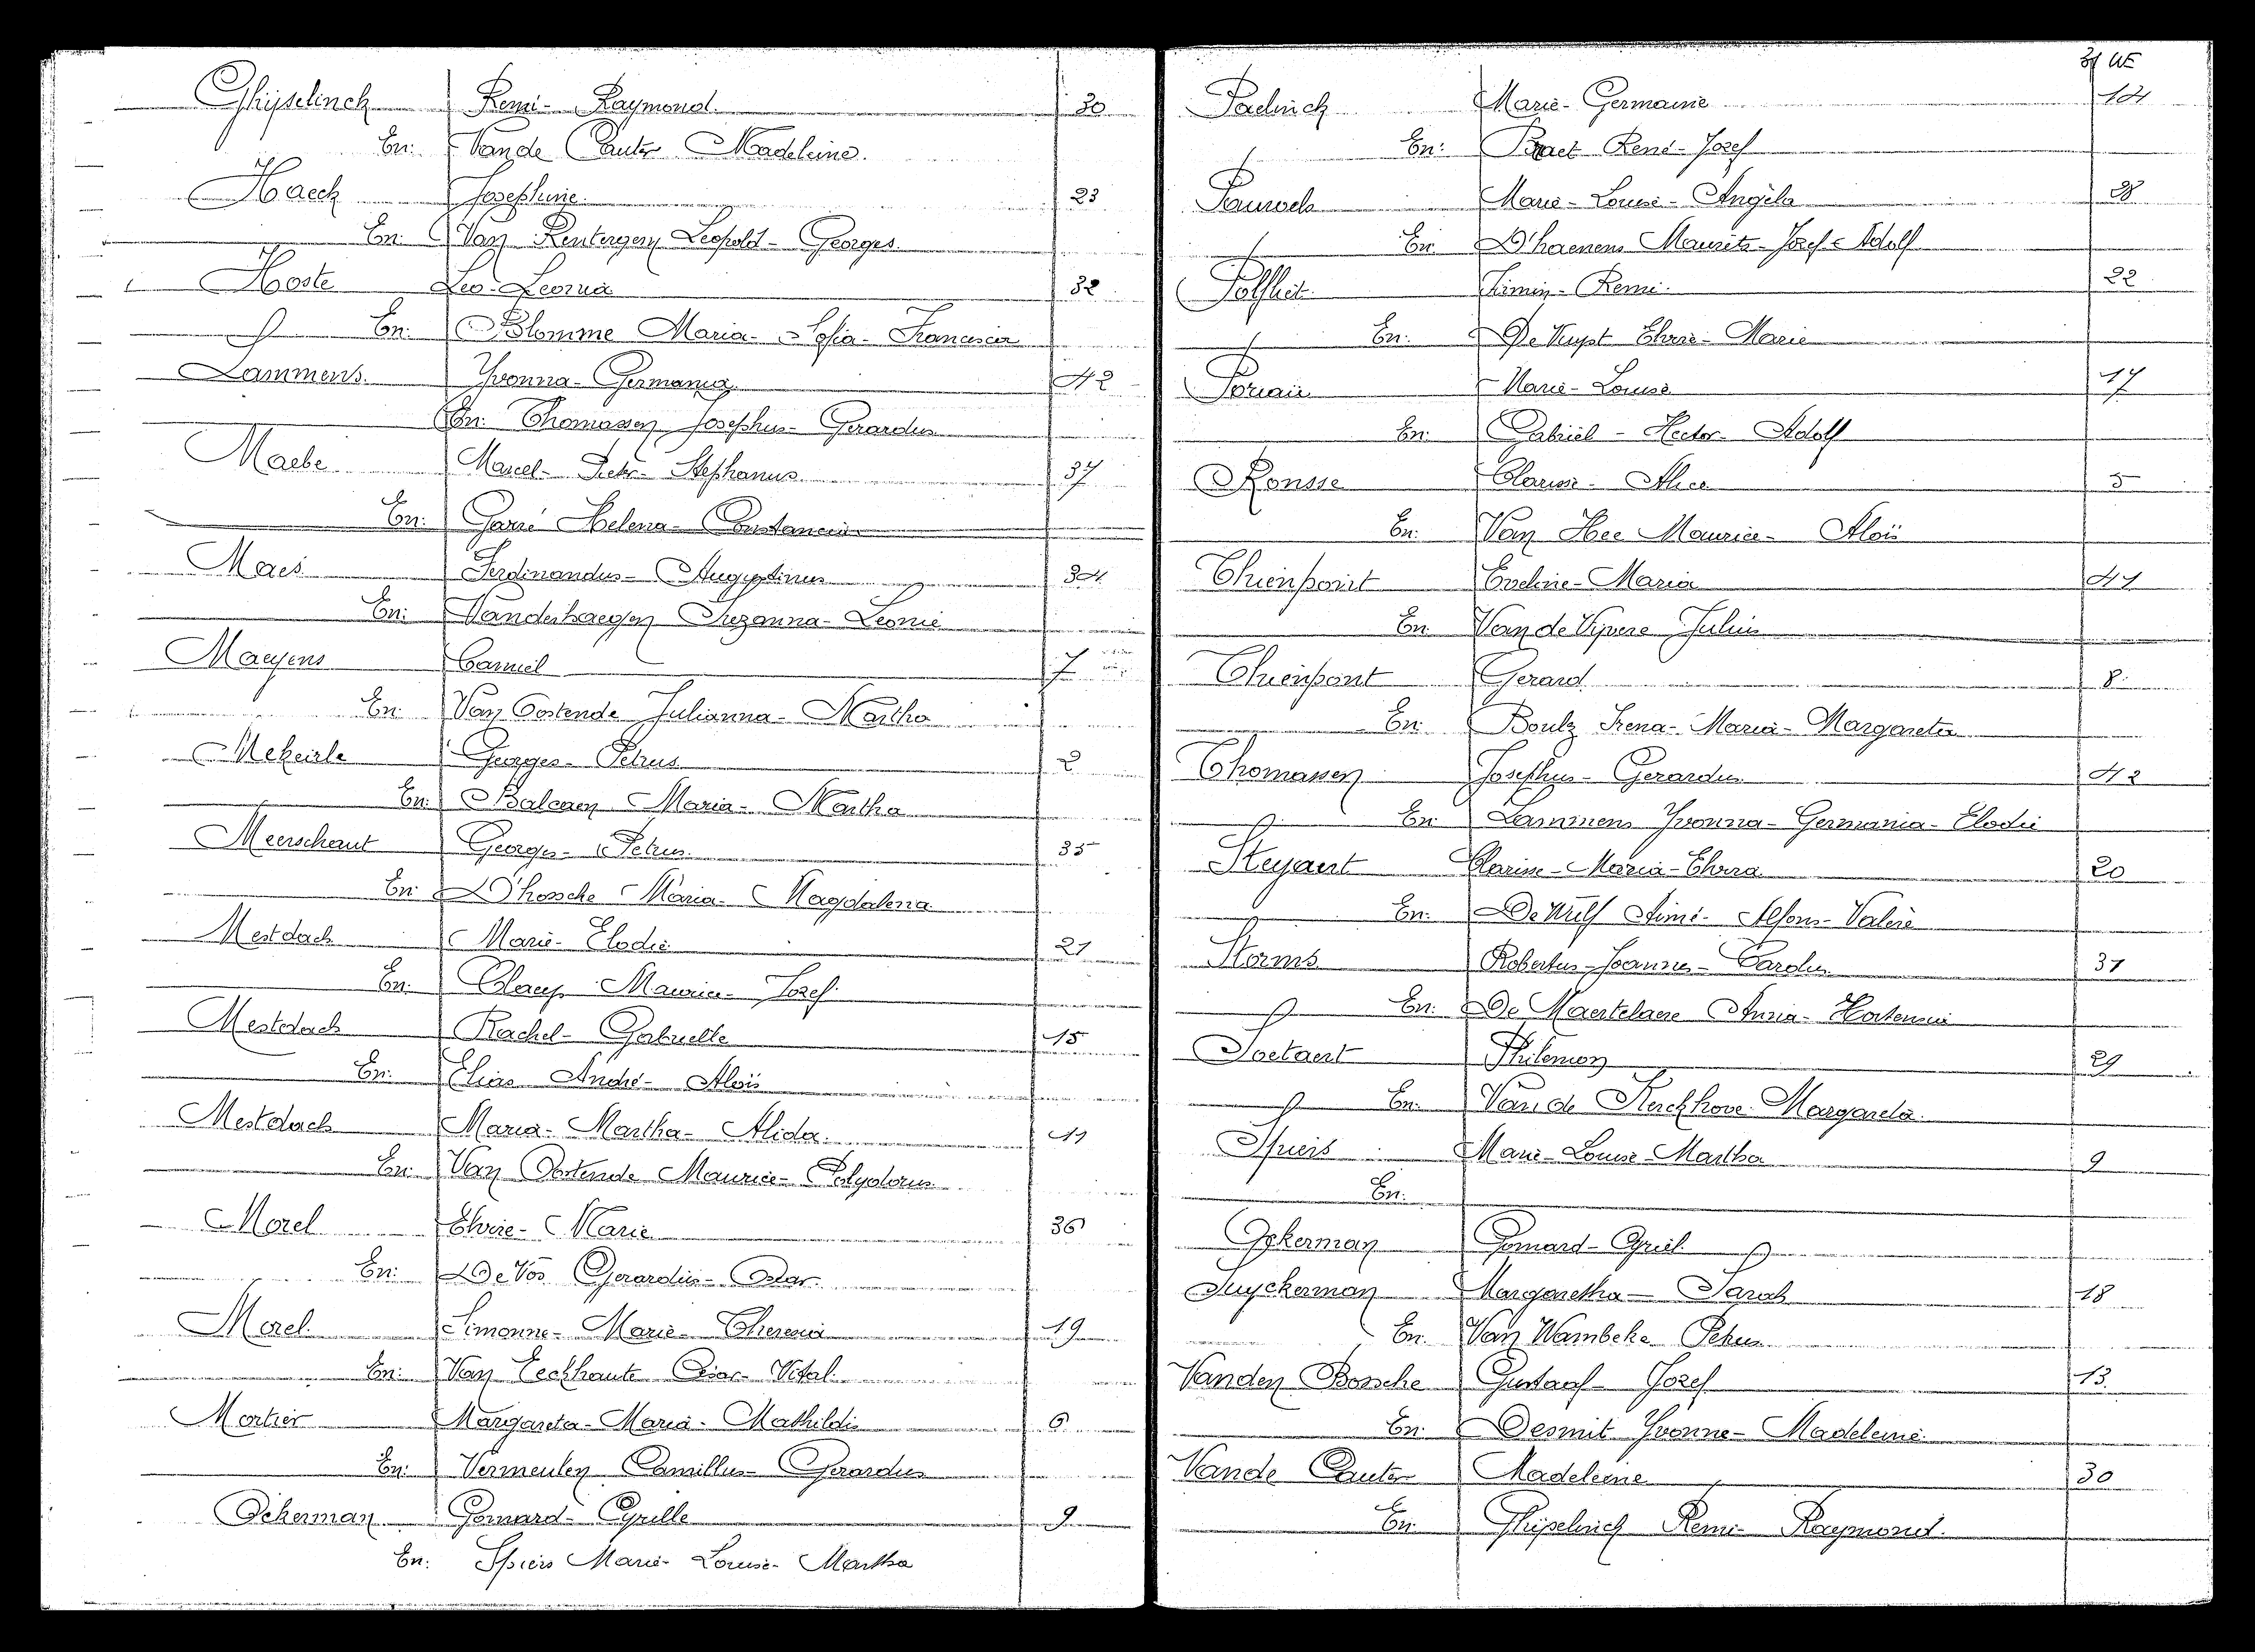 Ghijselinck Remi- Raymond. 30
En: Van de Cauter Madeleine.
Haeck Josephine. 23
En: Van Rentergem Leopold- Georges
Hoste Leo- Leonia 32
En: Blomme Maria- Sofia- Francisca
Lammens. Yvonna- Germania 42
En: Thomassen Josephus- Gerardus
Maebe Marcel- Petr- Stephanus 37
En: Garré Helena- Constancia
Maes Ferdinandus- Augustinus 34
En: Vanderhaegen Suzanna- Leonie
Maeyens Camiel 7
En: Van Oostende Julianna- Martha
Mekeirle Georges- Petrus 2
En: Balcaen Maria- Martha
Meerschaut Georges- Petrus. 35
En: D'hossche Maria- Magdalena
Mestdach Marie- Elodie 21
En: Claeys Maurice- Jozef.
Mestdach Rachel- Gabrielle 15
En: Elias André- Aloïs
Mestdach Maria- Martha- Alida. 11
En: Van Oostende Maurice- Polydorus
Morel Elvire- Marie 36
En: De Vos Gerardus- Oscar.
Morel. Simonne- Marie- Theresia 19
En: Van Eeckhaute Cesar- Vital.
Mortier Margareta- Maria- Mathildis 6
En: Vermeulen Camillus- Gerardus
Ockerman Gomard- Cyrille 9
En: Spiers Marie- Louise- Martha
Marie- Germaine 14
En: Braet René- Jozef
Pauwels Marie- Louise- Angèla 28
En: D'haenens Maurits- Jozef- Adolf
Polfliet Firmin- Remi. 22
En: De Kuyst Elvire- Marie
Poriau Marie- Louise 17
En: Gabriel- Hector- Adolf
Ronsse Clarisse- Alice 5
En: Van Hee Maurice- Aloïs
Thienpont Eveline- Maria 41
En: Van de Vijvere Julius
Thienpont Gerard 8
En: Irena- Maria- Margareta
Thomassen Josephus- Gerardus 42
En: Lammens Yvonna- Germania- Elodie
Steyaert Clarisse- Maria- Elvira 20
En: De Wulf Aimé- Alfons- Valère
Storms Robertus- Joannes- Carolus 31
En: De Maertelaere Anna- Hortensia
Soetaert Philemon 29
En: Van de Kerckhove Margareta.
Spiers Marie- Louise- Martha 9
En:
Ockerman Gomard- Cyriel
Suyckerman Margaretha- Sarah 18
En: Van Wambeke Petrus
Vanden Bossche Gustaaf- Jozef 13.
En: Desmit Yvonne- Madeleine
Van de Cauter Madeleine 30
En: Ghijselinck Remi- Raymond.